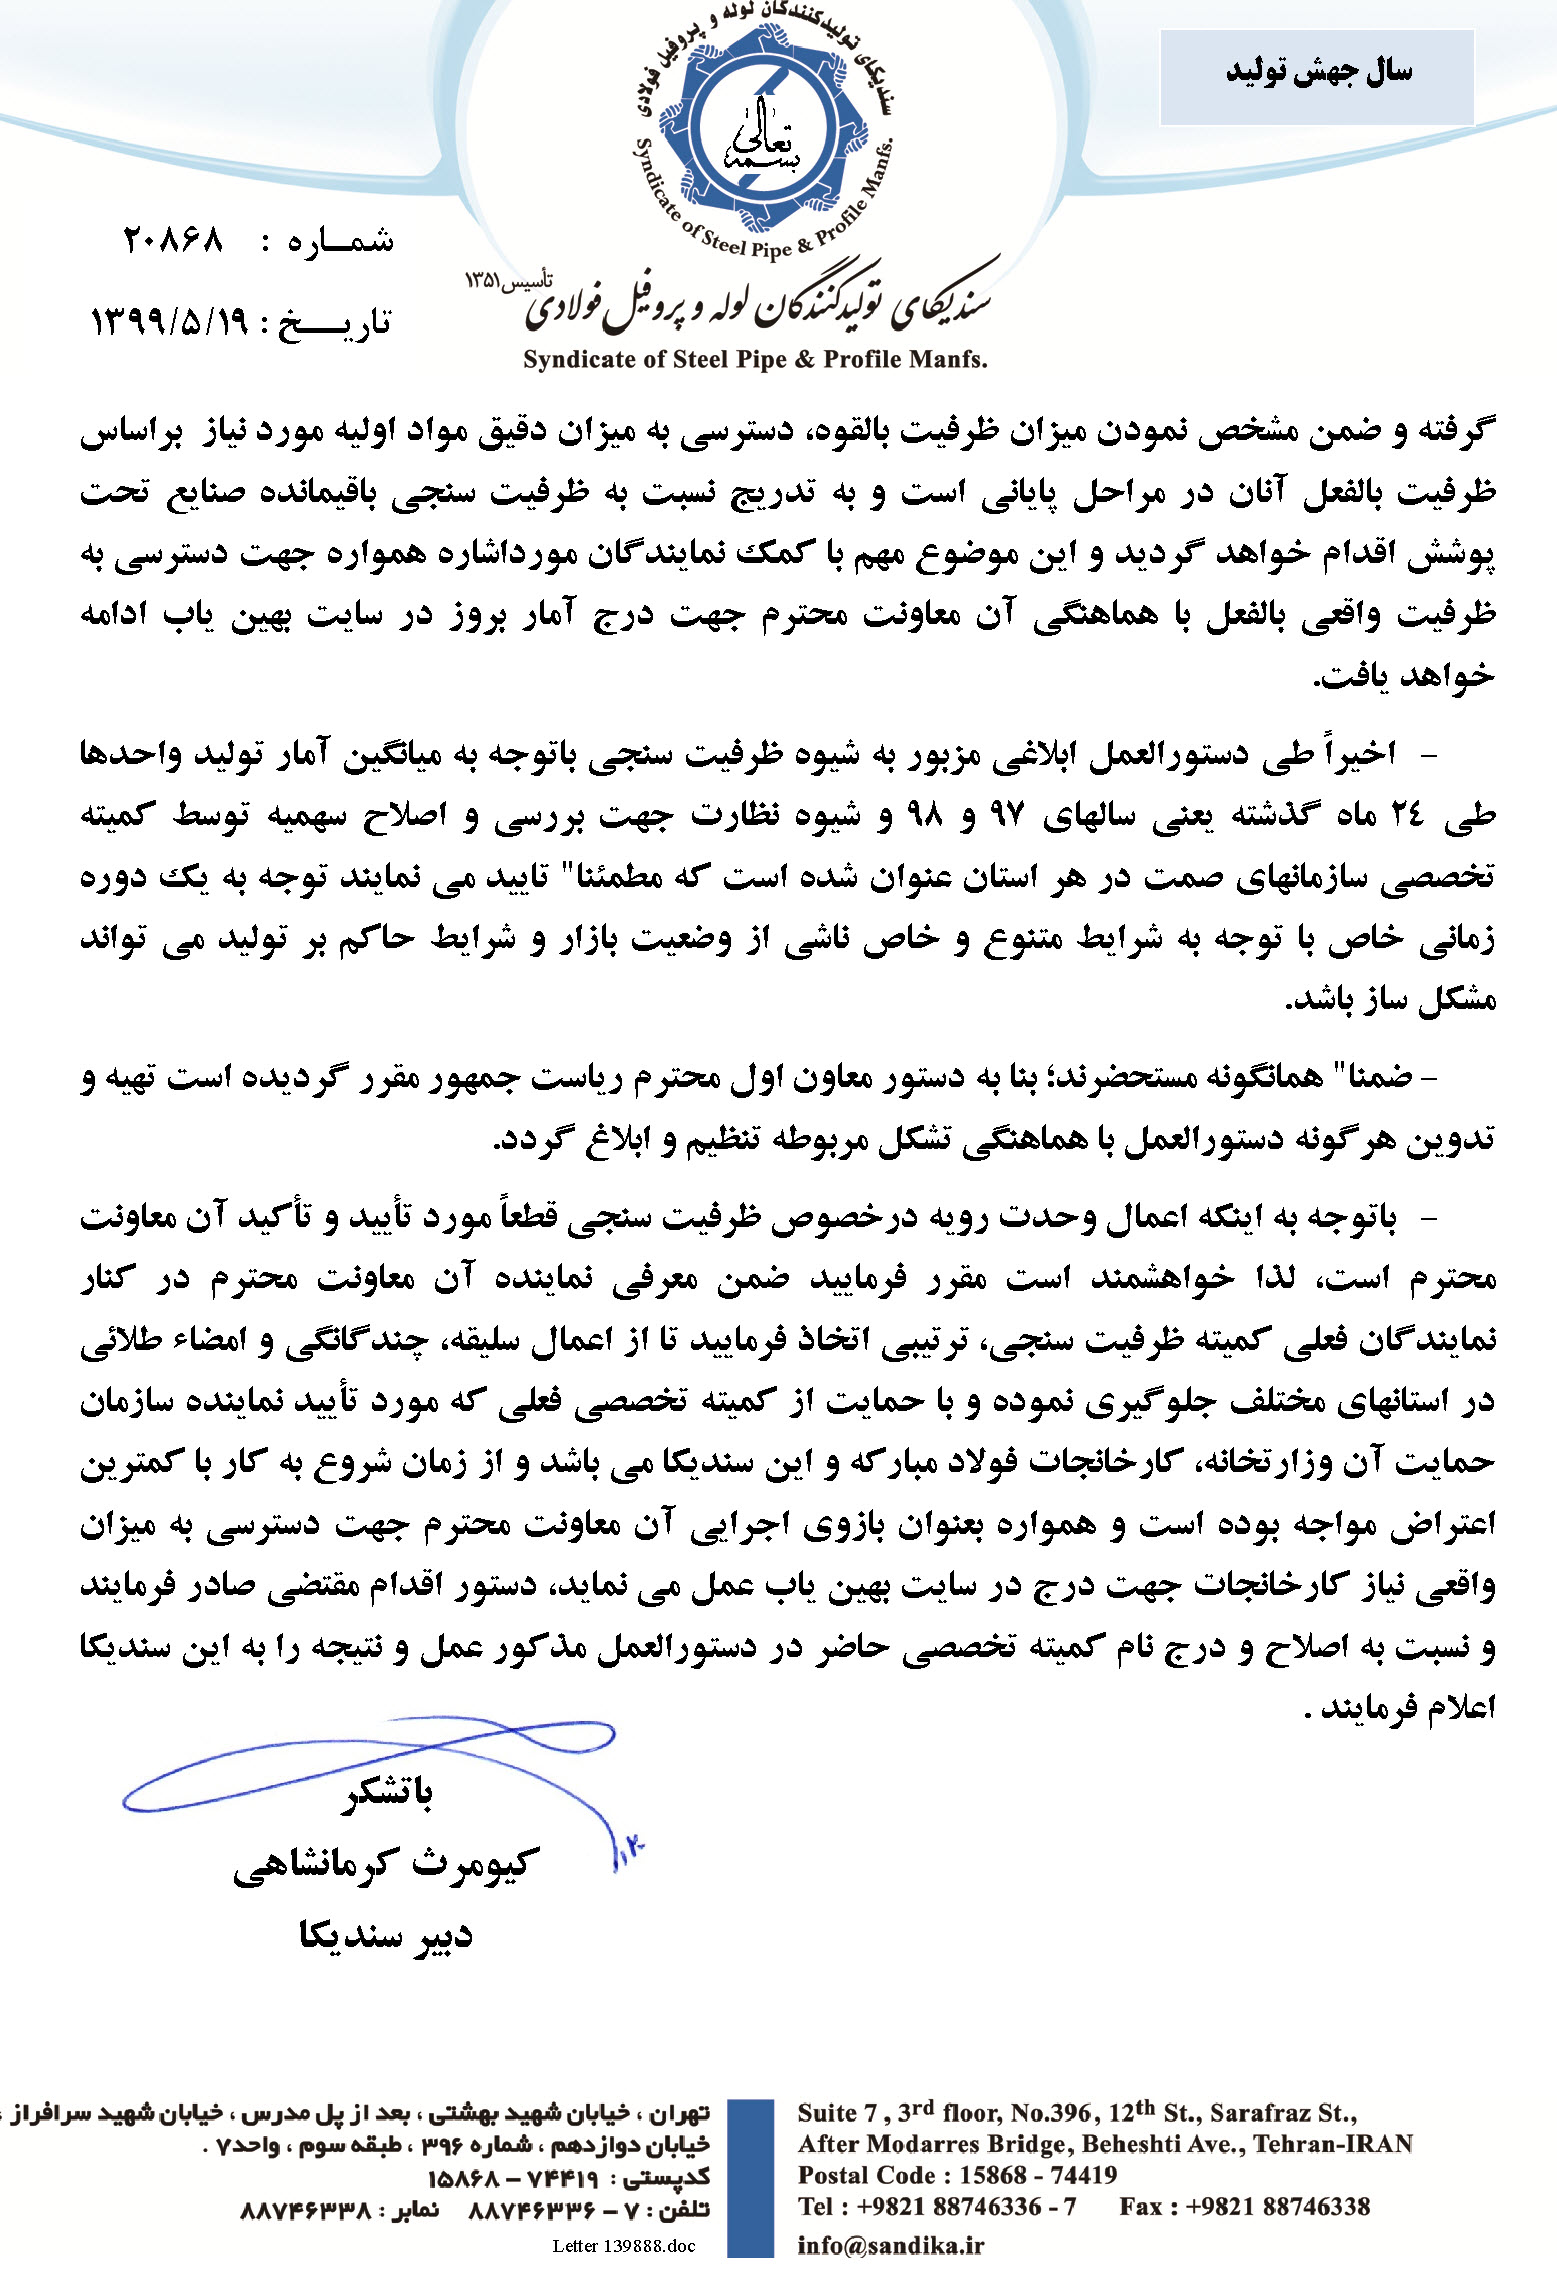 سندیکای تولیدکنندگان لوله و پروفیل فولادی
سال جهش تولید
بسمه تعالی
Syndicate of Steel Pipe & Profile Manfs.
شمـــاره : ۲۰۸۶۸
تأسیس ۱۳۵۱
سندیکای تولیدکنندگان لوله و پروفیل فولادی
تاریـــــخ : ۱۳۹۹/۵/۱۹
Syndicate of Steel Pipe & Profile Manfs.
گرفته و ضمن مشخص نمودن میزان ظرفیت بالقوه، دسترسی به میزان دقیق مواد اولیه مورد نیاز براساس
ظرفیت بالفعل آنان در مراحل پایانی است و به تدریج نسبت به ظرفیت سنجی باقیمانده صنایع تحت
پوشش اقدام خواهد گردید و این موضوع مهم با کمک نمایندگان مورداشاره همواره جهت دسترسی به
ظرفیت واقعی بالفعل با هماهنگی آن معاونت محترم جهت درج آمار بروز در سایت بهین یاب ادامه
خواهد یافت.
- اخیراً طی دستورالعمل ابلاغی مزبور به شیوه ظرفیت سنجی باتوجه به میانگین آمار تولید واحدها
طی ۲٤ ماه گذشته یعنی سالهای ۹۷ و ۹۸ و شیوه نظارت جهت بررسی و اصلاح سهمیه توسط کمیته
تخصصی سازمانهای صمت در هر استان عنوان شده است که مطمئنا" تایید می نمایند توجه به یک دوره
زمانی خاص با توجه به شرایط متنوع و خاص ناشی از وضعیت بازار و شرایط حاکم بر تولید می تواند
مشکل ساز باشد.
- ضمنا" همانگونه مستحضرند؛ بنا به دستور معاون اول محترم ریاست جمهور مقرر گردیده است تهیه و
تدوین هرگونه دستورالعمل با هماهنگی تشکل مربوطه تنظیم و ابلاغ گردد.
- باتوجه به اینکه اعمال وحدت رویه درخصوص ظرفیت سنجی قطعاً مورد تأیید و تأکید آن معاونت
محترم است، لذا خواهشمند است مقرر فرمایید ضمن معرفی نماینده آن معاونت محترم در کنار
نمایندگان فعلی کمیته ظرفیت سنجی، ترتیبی اتخاذ فرمایید تا از اعمال سلیقه، چندگانگی و امضاء طلائی
در استانهای مختلف جلوگیری نموده و با حمایت از کمیته تخصصی فعلی که مورد تأیید نماینده سازمان
حمایت آن وزارتخانه، کارخانجات فولاد مبارکه و این سندیکا می باشد و از زمان شروع به کار با کمترین
اعتراض مواجه بوده است و همواره بعنوان بازوی اجرایی آن معاونت محترم جهت دسترسی به میزان
واقعی نیاز کارخانجات جهت درج در سایت بهین یاب عمل می نماید، دستور اقدام مقتضی صادر فرمایند
و نسبت به اصلاح و درج نام کمیته تخصصی حاضر در دستورالعمل مذکور عمل و نتیجه را به این سندیکا
اعلام فرمایند .
باتشکر
کیومرث کرمانشاهی
دبیر سندیکا
تهران ، خیابان شهید بهشتی ، بعد از پل مدرس ، خیابان شهید سرافراز ،
خیابان دوازدهم ، شماره ۳۹۶ ، طبقه سوم ، واحد۷ .
کدپستی : ۷۴۴۱۹ – ۱۵۸۶۸
تلفن : ۷ – ۸۸۷۴۶۳۳۶ نمابر : ۸۸۷۴۶۳۳۸
Letter 139888.doc
Suite 7 , 3rd floor, No.396, 12th St., Sarafraz St.,
After Modarres Bridge, Beheshti Ave., Tehran-IRAN
Postal Code : 15868 - 74419
Tel : +9821 88746336 - 7 Fax : +9821 88746338
info@sandika.ir